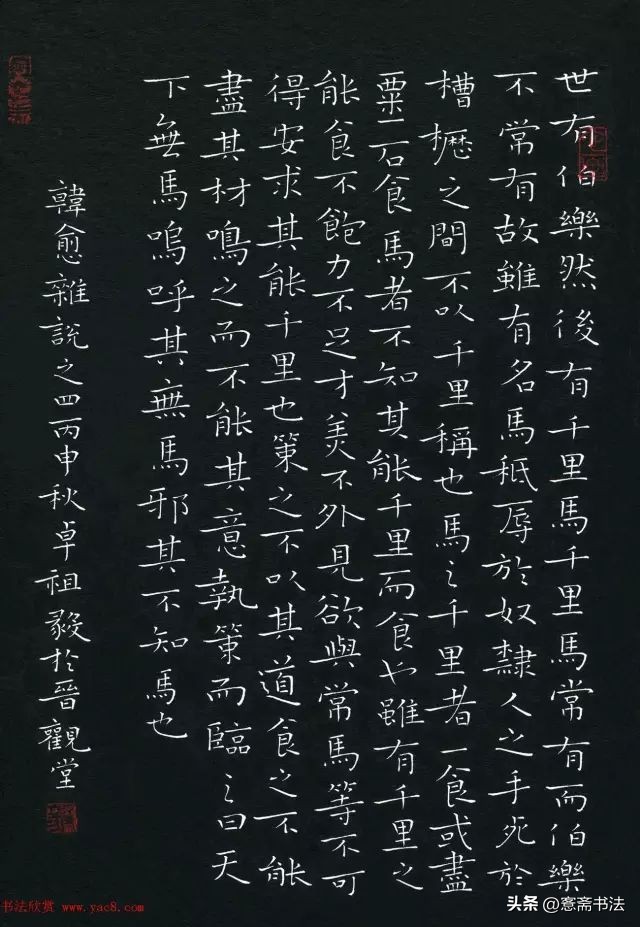 世有伯樂然後有千里馬千里馬常有而伯樂
不常有故雖有名馬秖辱於奴隸人之手死於
槽櫪之間不以千里稱也馬之千里者一食或盡
粟一石食馬者不知其能千里而食也雖有千里之
能食不飽力不足才美不外見欲與常馬等不可
得安求其能千里也策之不以其道食之不能
盡其材鳴之而不能其意執策而臨之曰天
下無馬嗚呼其無馬邪其不知馬也
韓愈雜說之四丙申秋卓祖毅於晉觀堂
书法欣赏 www.yac8.com
头条 @憃斋书法